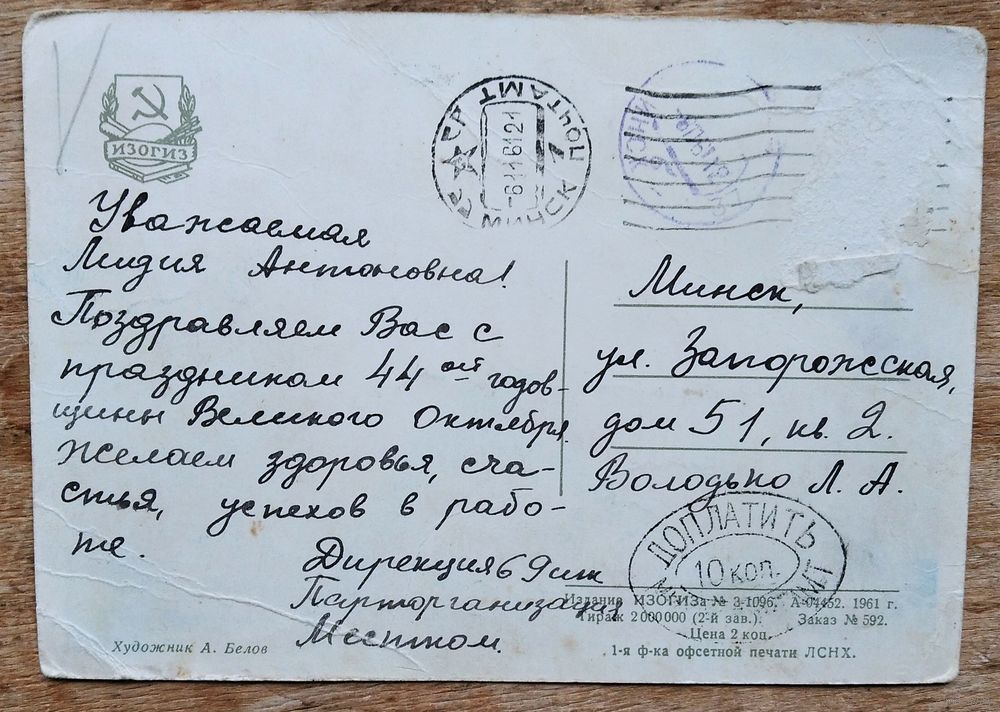 ИЗОГИЗ
МИНСК ПОЧТАМТ 1
-6116121
Уважаемая
Лидия Антоновна!
Поздравляем Вас с
праздником 44ой годов-
щины Великого Октября.
Желаем здоровья, сча-
стья, успехов в рабо-
те.
Дирекция
Парторганизация
Местком.
Минск,
ул. Запорожсская,
дом 51, кв. 2.
Володько Л. А.
ДОПЛАТИТЬ
10 коп.
Издание ИЗОГИЗа № 3-1096. А-04452. 1961 г.
Тираж 2000000 (2-й зав.). Заказ № 592.
Цена 2 коп.
1-я ф-ка офсетной печати ЛСНХ.
Художник А. Белов